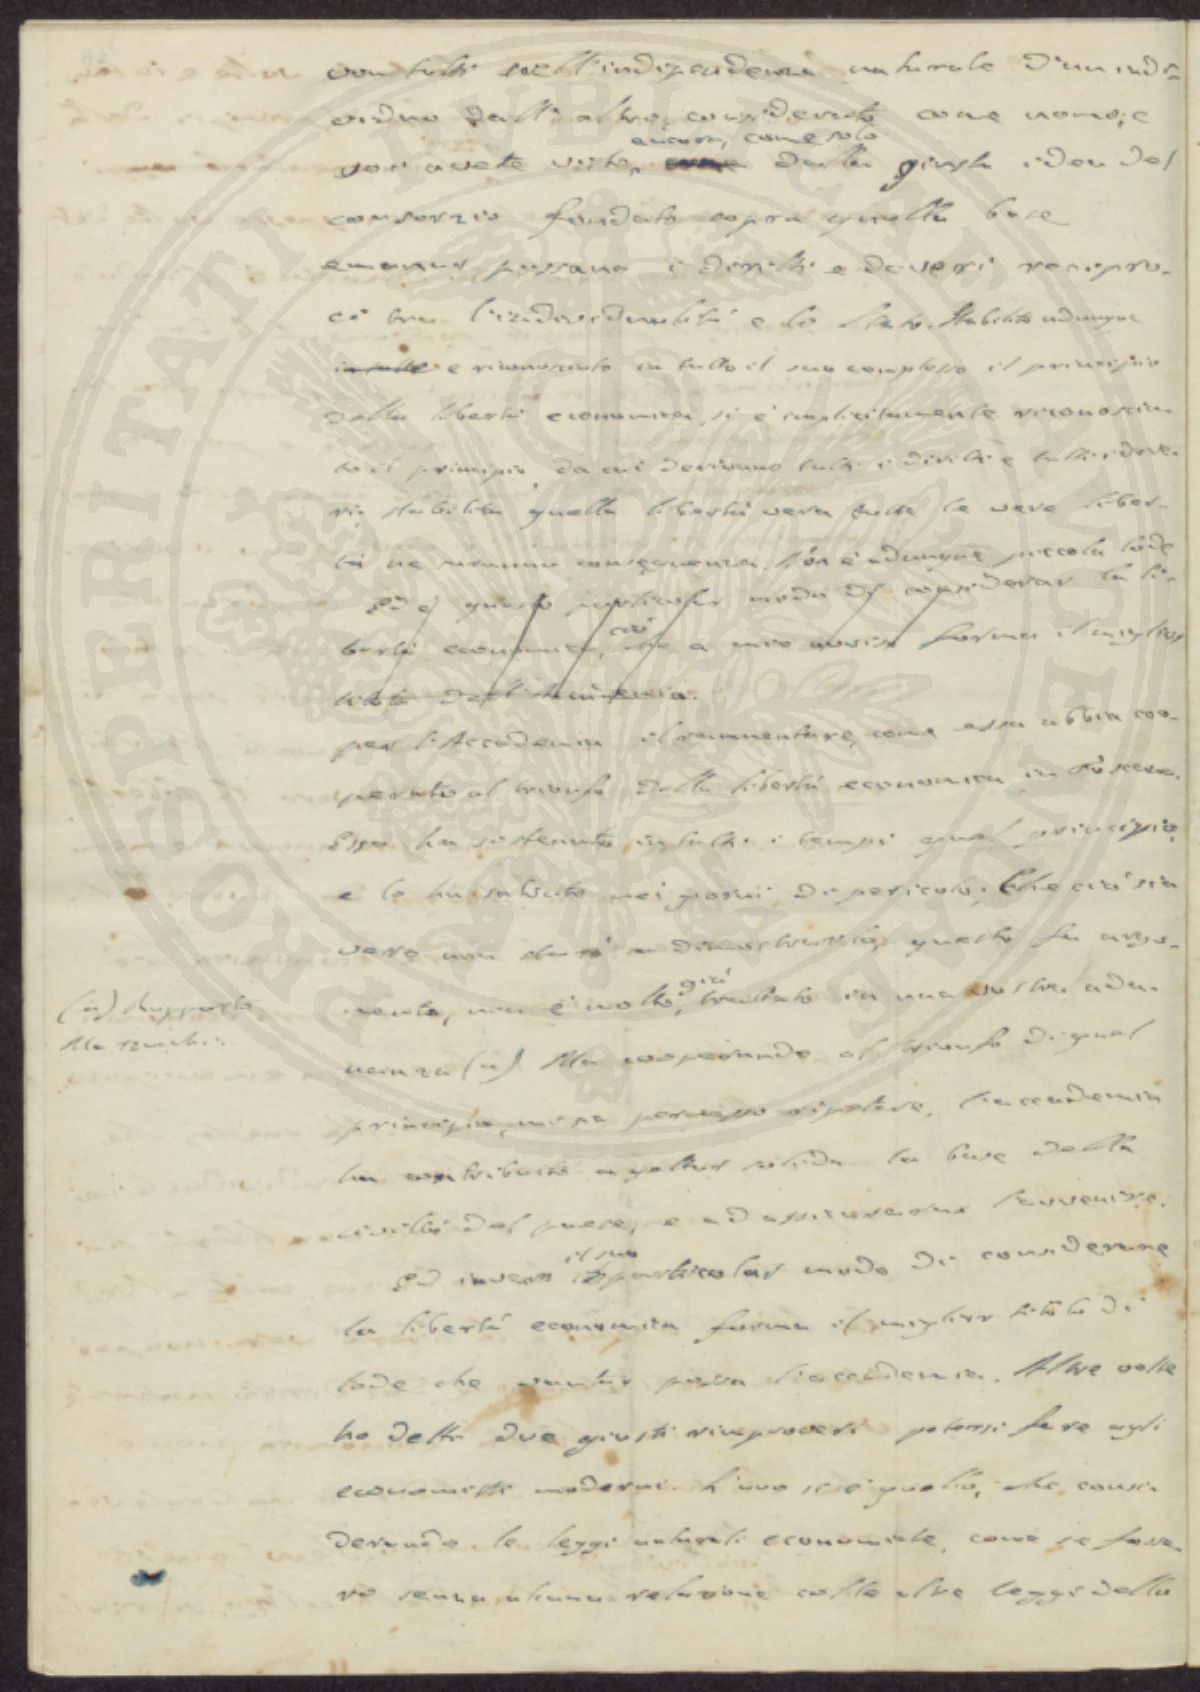 con tutti nell'indipendenza naturale d'un indi-
viduo dall'altro considerato come uomo, e
ancora, come solo
voi avete visto, dalla giusta idea del
consorzio fondato sopra quella base
emanar possano i diritti e doveri recipro-
ci tra l'individualità e lo Stato. Stabilito adunque
in tutto e riconosciuto in tutto il suo complesso il principio
della libertà economica, si è implicitamente riconosciu-
to il principio, da cui derivano tutti i diritti e tutti i dove-
ri; stabilita quella libertà vera tutte le vere liber-
tà ne saranno conseguenza. Non è adunque piccola lode
Ed è questo particolar modo di considerar la li-
bertà economica, ciò che a mio avviso forma il miglior
titolo dell'Accademia.
per l'Accademia il rammentare, come essa abbia coo-
perato al trionfo della libertà economica in Toscana.
Essa ha sostenuto in tutti i tempi quel principio,
e lo ha salvato nei giorni di pericolo. Che ciò sia
vero non starò a dimostrarlo, questo fu argo-
mento, non è molto, già trattato in una vostra adu-
nanza (a) Ma cooperando al trionfo di quel
(a) Rapporto
Marzucchi.
principio, mi sia permesso ripetere, l'accademia
ha contribuito a gettar solida la base della
civiltà del paese, e ad assicurarne l'avvenire.
Ed invero il suo particolar modo di considerare
la libertà economica forma il miglior titolo di
lode che vantar possa l'accademia. Altre volte
ho detto due giusti rimproveri potersi fare agli
economisti moderni. L'uno si è quello, che consi-
derando le leggi naturali economiche, come se fosse-
ro senza alcuna relazione colle altre leggi della